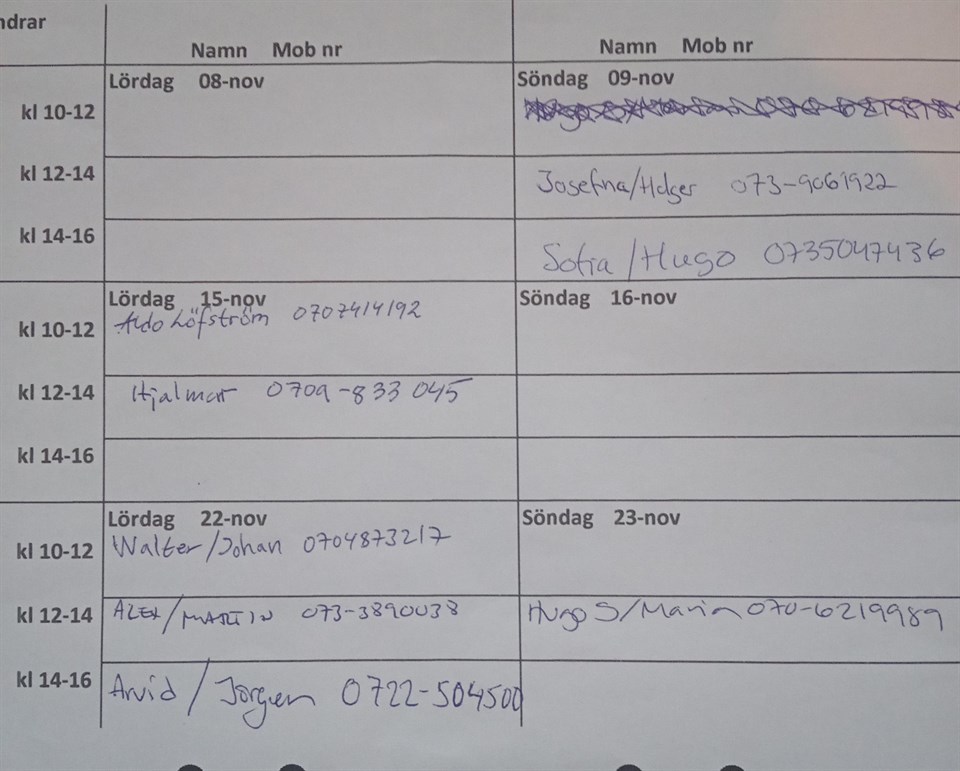 ndrar
Namn Mob nr Namn Mob nr
Lördag 08-nov Söndag 09-nov
kl 10-12
kl 12-14 Josefina/Holger 073-9061922
kl 14-16 Sofia/Hugo 0735047436
Lördag 15-nov Söndag 16-nov
kl 10-12 Aldo Löfström 0707414192
kl 12-14 Hjalmar 0709-833 045
kl 14-16
Lördag 22-nov Söndag 23-nov
kl 10-12 Walter/Johan 0704873217
kl 12-14 ALEX/MARTIN 073-3890038 Hugo S/Maria 070-6219989
kl 14-16 Arvid/Jörgen 0722-504500